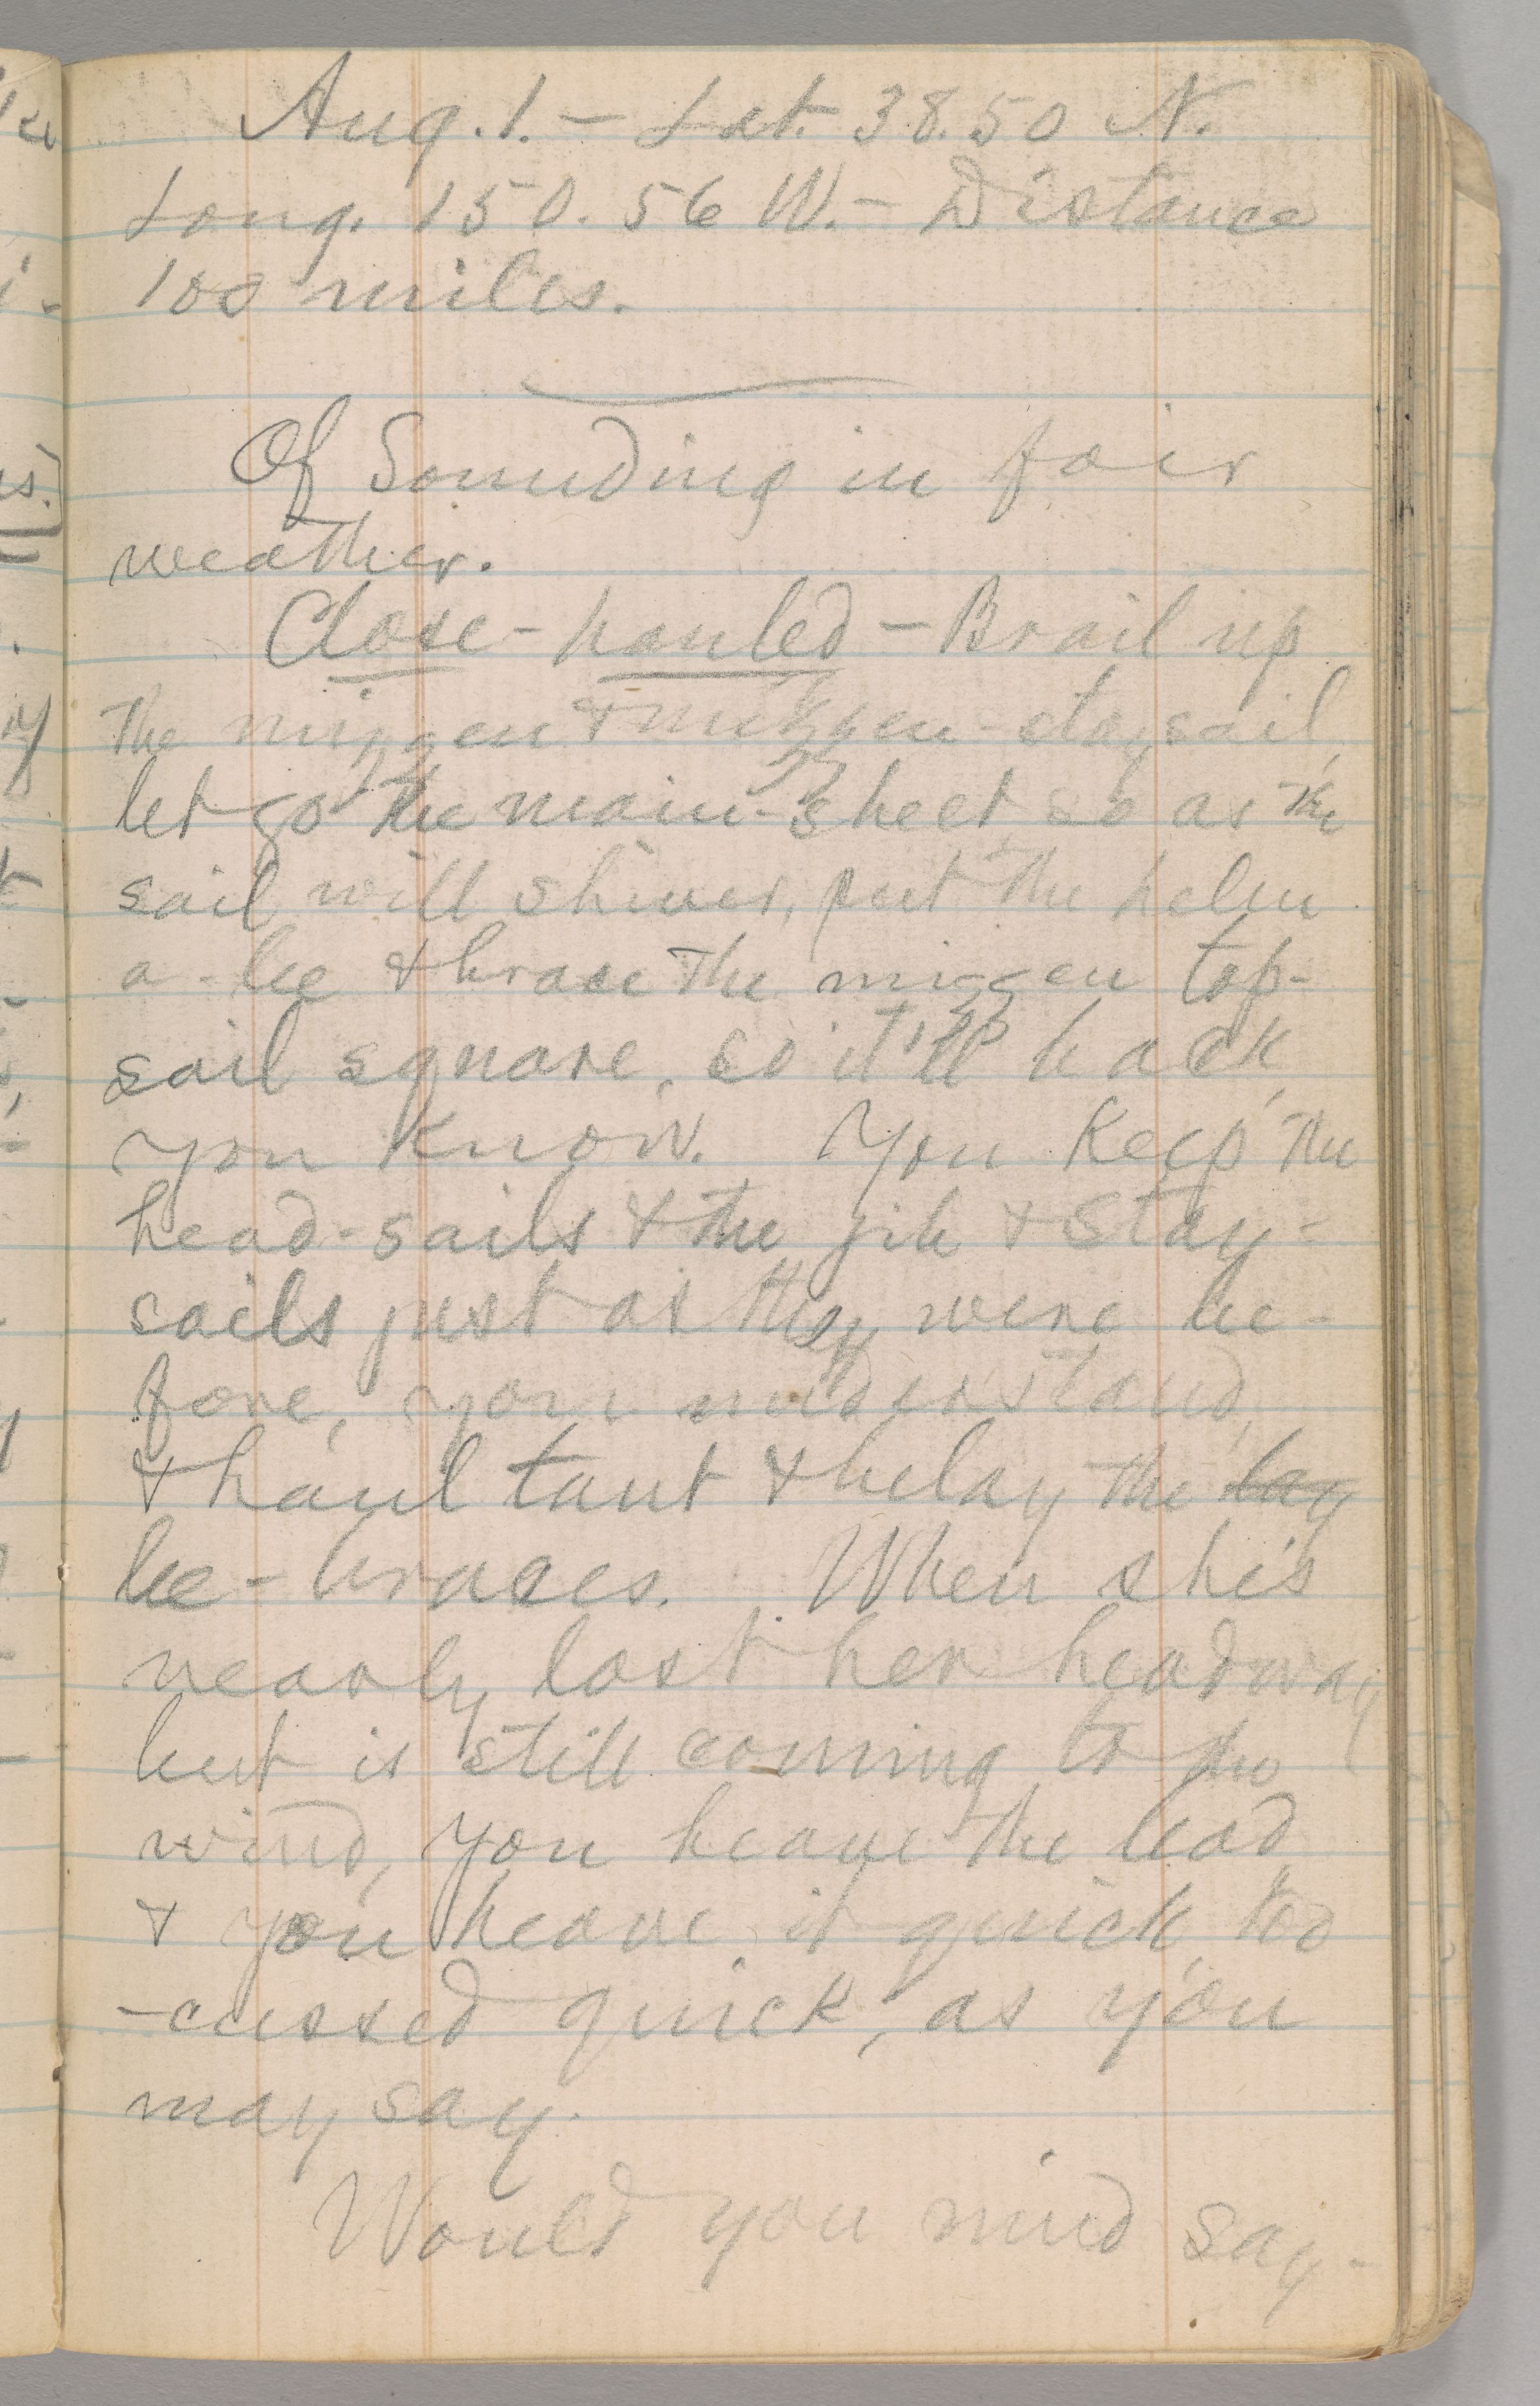 Aug. 1. — Lat. 38.50 N.
Long. 150. 56 W. — Distance
100 miles.
Of Sounding in fair
weather.
Close-hauled — Brail up
the mizzen & mizzen-staysail,
let go the main-sheet, so as the
sail will shiver, put the helm
a-lee & brace the mizzen top-
sail square, so it'll back,
you know. You keep the
head-sails & the jib & stay-
sails just as they were be-
fore, you understand,
& haul taut & belay the lay
lee-braces. When she's
nearly lost her headway
but is still coming to the
wind, you heave the lead,
& you heave it quick, too
—cussed quick, as you
may say.
Would you mind say-